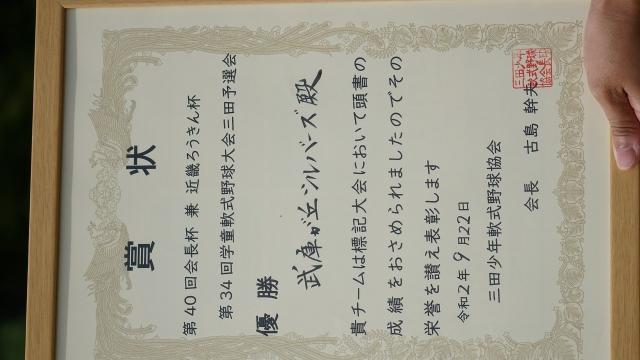 賞状
第40回会長杯 兼 近畿ろうきん杯
第34回学童軟式野球大会三田予選会
優勝
武庫が丘シルバーズ殿
貴チームは標記大会において頭書の
成績をおさめられましたのでその
栄誉を讃え表彰します
令和2年9月22日
三田少年軟式野球協会
会長 古島 幹夫